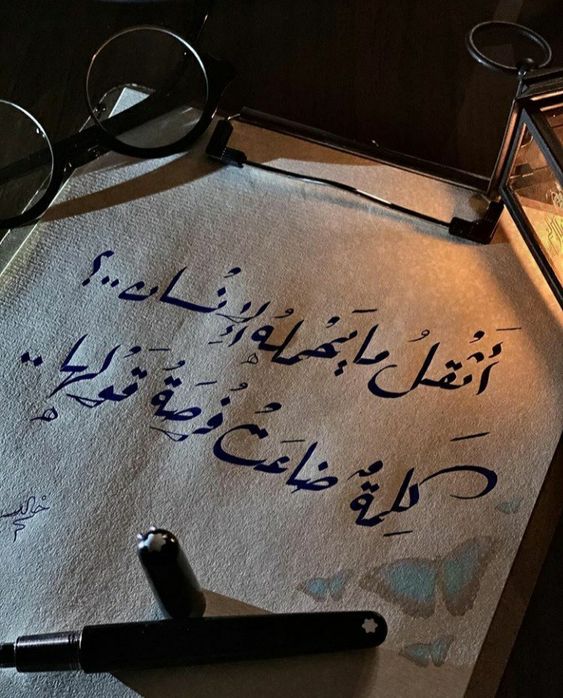 أَثْقلُ ما يَحْملهُ الإِنْسان..؟
كَلِمةٌ ضاعَتْ فُرصَةُ قَولها..
خالد